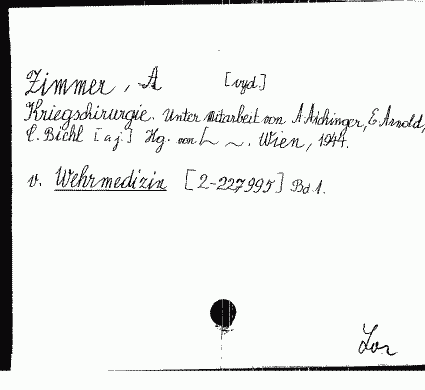 Zimmer, A [vyd.]
Kriegschirurgie. Unter Mitarbeit von A Aichinger, E Arnold,
C. Bichl [a j.] Hg. von [~. Wien, 1944.
v. Wehrmedizin [2-227995] Bd 1.
Lor